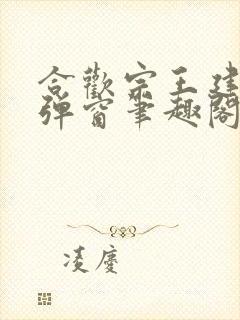 合歡宗王建
彈窗筆趣閣
凌慶